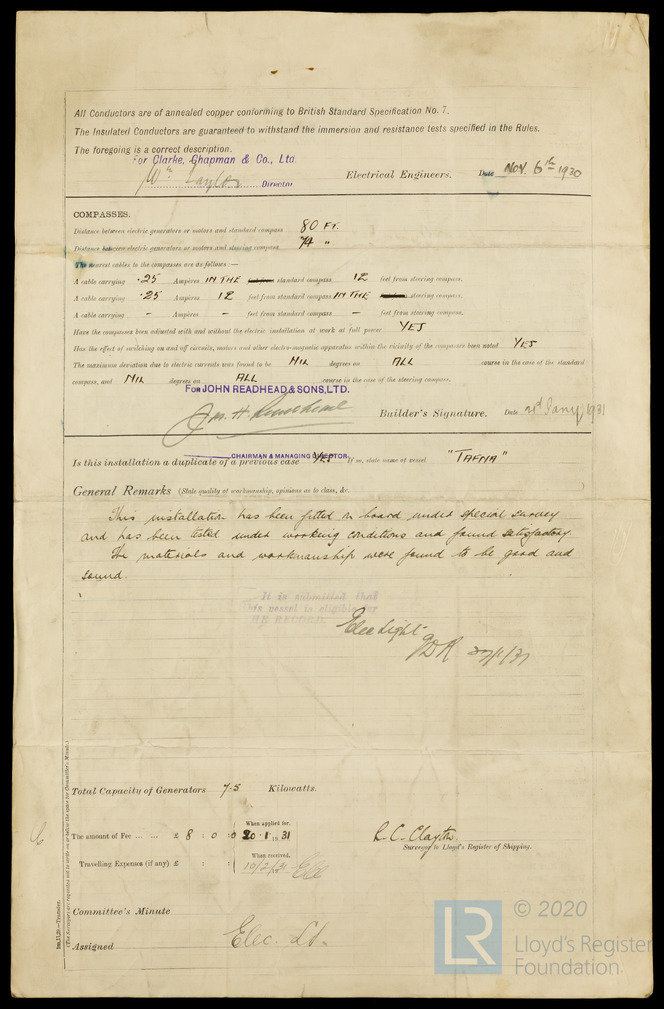 All Conductors are of annealed copper conforming to British Standard Specification No. 7.
The Insulated Conductors are guaranteed to withstand the immersion and resistance tests specified in the Rules.
The foregoing is a correct description.
For Clarke, Chapman & Co., Ltd.
Director
Electrical Engineers. Date Nov. 6th 1930
COMPASSES.
Distance between electric generators or motors and standard compass 80 FT.
Distance between electric generators or motors and steering compass 74 "
The nearest cables to the compasses are as follows:—
A cable carrying .25 Ampères IN THE standard compass 12 feet from steering compass.
A cable carrying .25 Ampères 12 feet from standard compass IN THE steering compass.
A cable carrying - Ampères - feet from standard compass - feet from steering compass.
Have the compasses been adjusted with and without the electric installation at work at full power YES
Has the effect of switching on and off circuits, motors and other electro-magnetic apparatus within the vicinity of the compasses been noted YES
The maximum deviation due to electric currents was found to be NIL degrees on ALL course in the case of the standard
compass, and NIL degrees on ALL course in the case of the steering compass.
FOR JOHN READHEAD & SONS, LTD.
Jas. H. Readhead Builder's Signature. Date 2nd Jany, 1931
CHAIRMAN & MANAGING DIRECTOR
Is this installation a duplicate of a previous case YES If so, state name of vessel "TAFNA"
General Remarks (State quality of workmanship, opinions as to class, &c.
This installation has been fitted on board under special survey
and has been tested under working conditions and found satisfactory.
The materials and workmanship were found to be good and
sound.
It is submitted that
this vessel is eligible for
THE RECORD.
Elec Light
27/1/31
Total Capacity of Generators 7.5 Kilowatts.
The amount of Fee ... ... £ 8 : 0 : 0
When applied for,
20.1.1931
L. C. Clayton.
Surveyor to Lloyd's Register of Shipping.
Travelling Expenses (if any) £ : :
When received,
10/2/31
Committee's Minute
Assigned Elec. Lt.
5m.11.29.—Transfer.
(The Surveyors are requested not to write on or below the space for Committee's Minute.)
LR
© 2020
Lloyd's Register
Foundation.